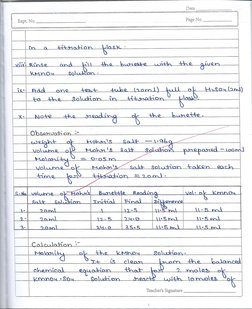 Date
Expt. No.
Page No.
in a titration flask.
viii· Rinse and fill the burette with the given
KMnO4 solution.
ix· Add one test tube (20ml) full of H2SO4 (2M)
to the solution in titration flask
x. Note the reading of the burette.
Observation :-
weight of Mohr's salt = 1.96g
volume of Mohr's salt solution prepared = 100ml
Molarity = 0.05 m
volume of Mohr's salt solution taken each
time for titration = 20ml.
S.No volume of Mohr's Burette Reading vol. of KMnO4
salt solution Initial Final Difference
1· 20ml 1 12.5 11.5ml 11.5ml
2· 20ml 12.5 24.0 11.5ml 11.5ml
3· 20ml 24.0 35.5 11.5ml 11.5ml
Calculation :-
Molarity of the KMnO4 solution.
It is clear from the balanced
chemical equation that for 2 moles of
KMnO4 solution reacts with 10 moles of
Teacher's Signature